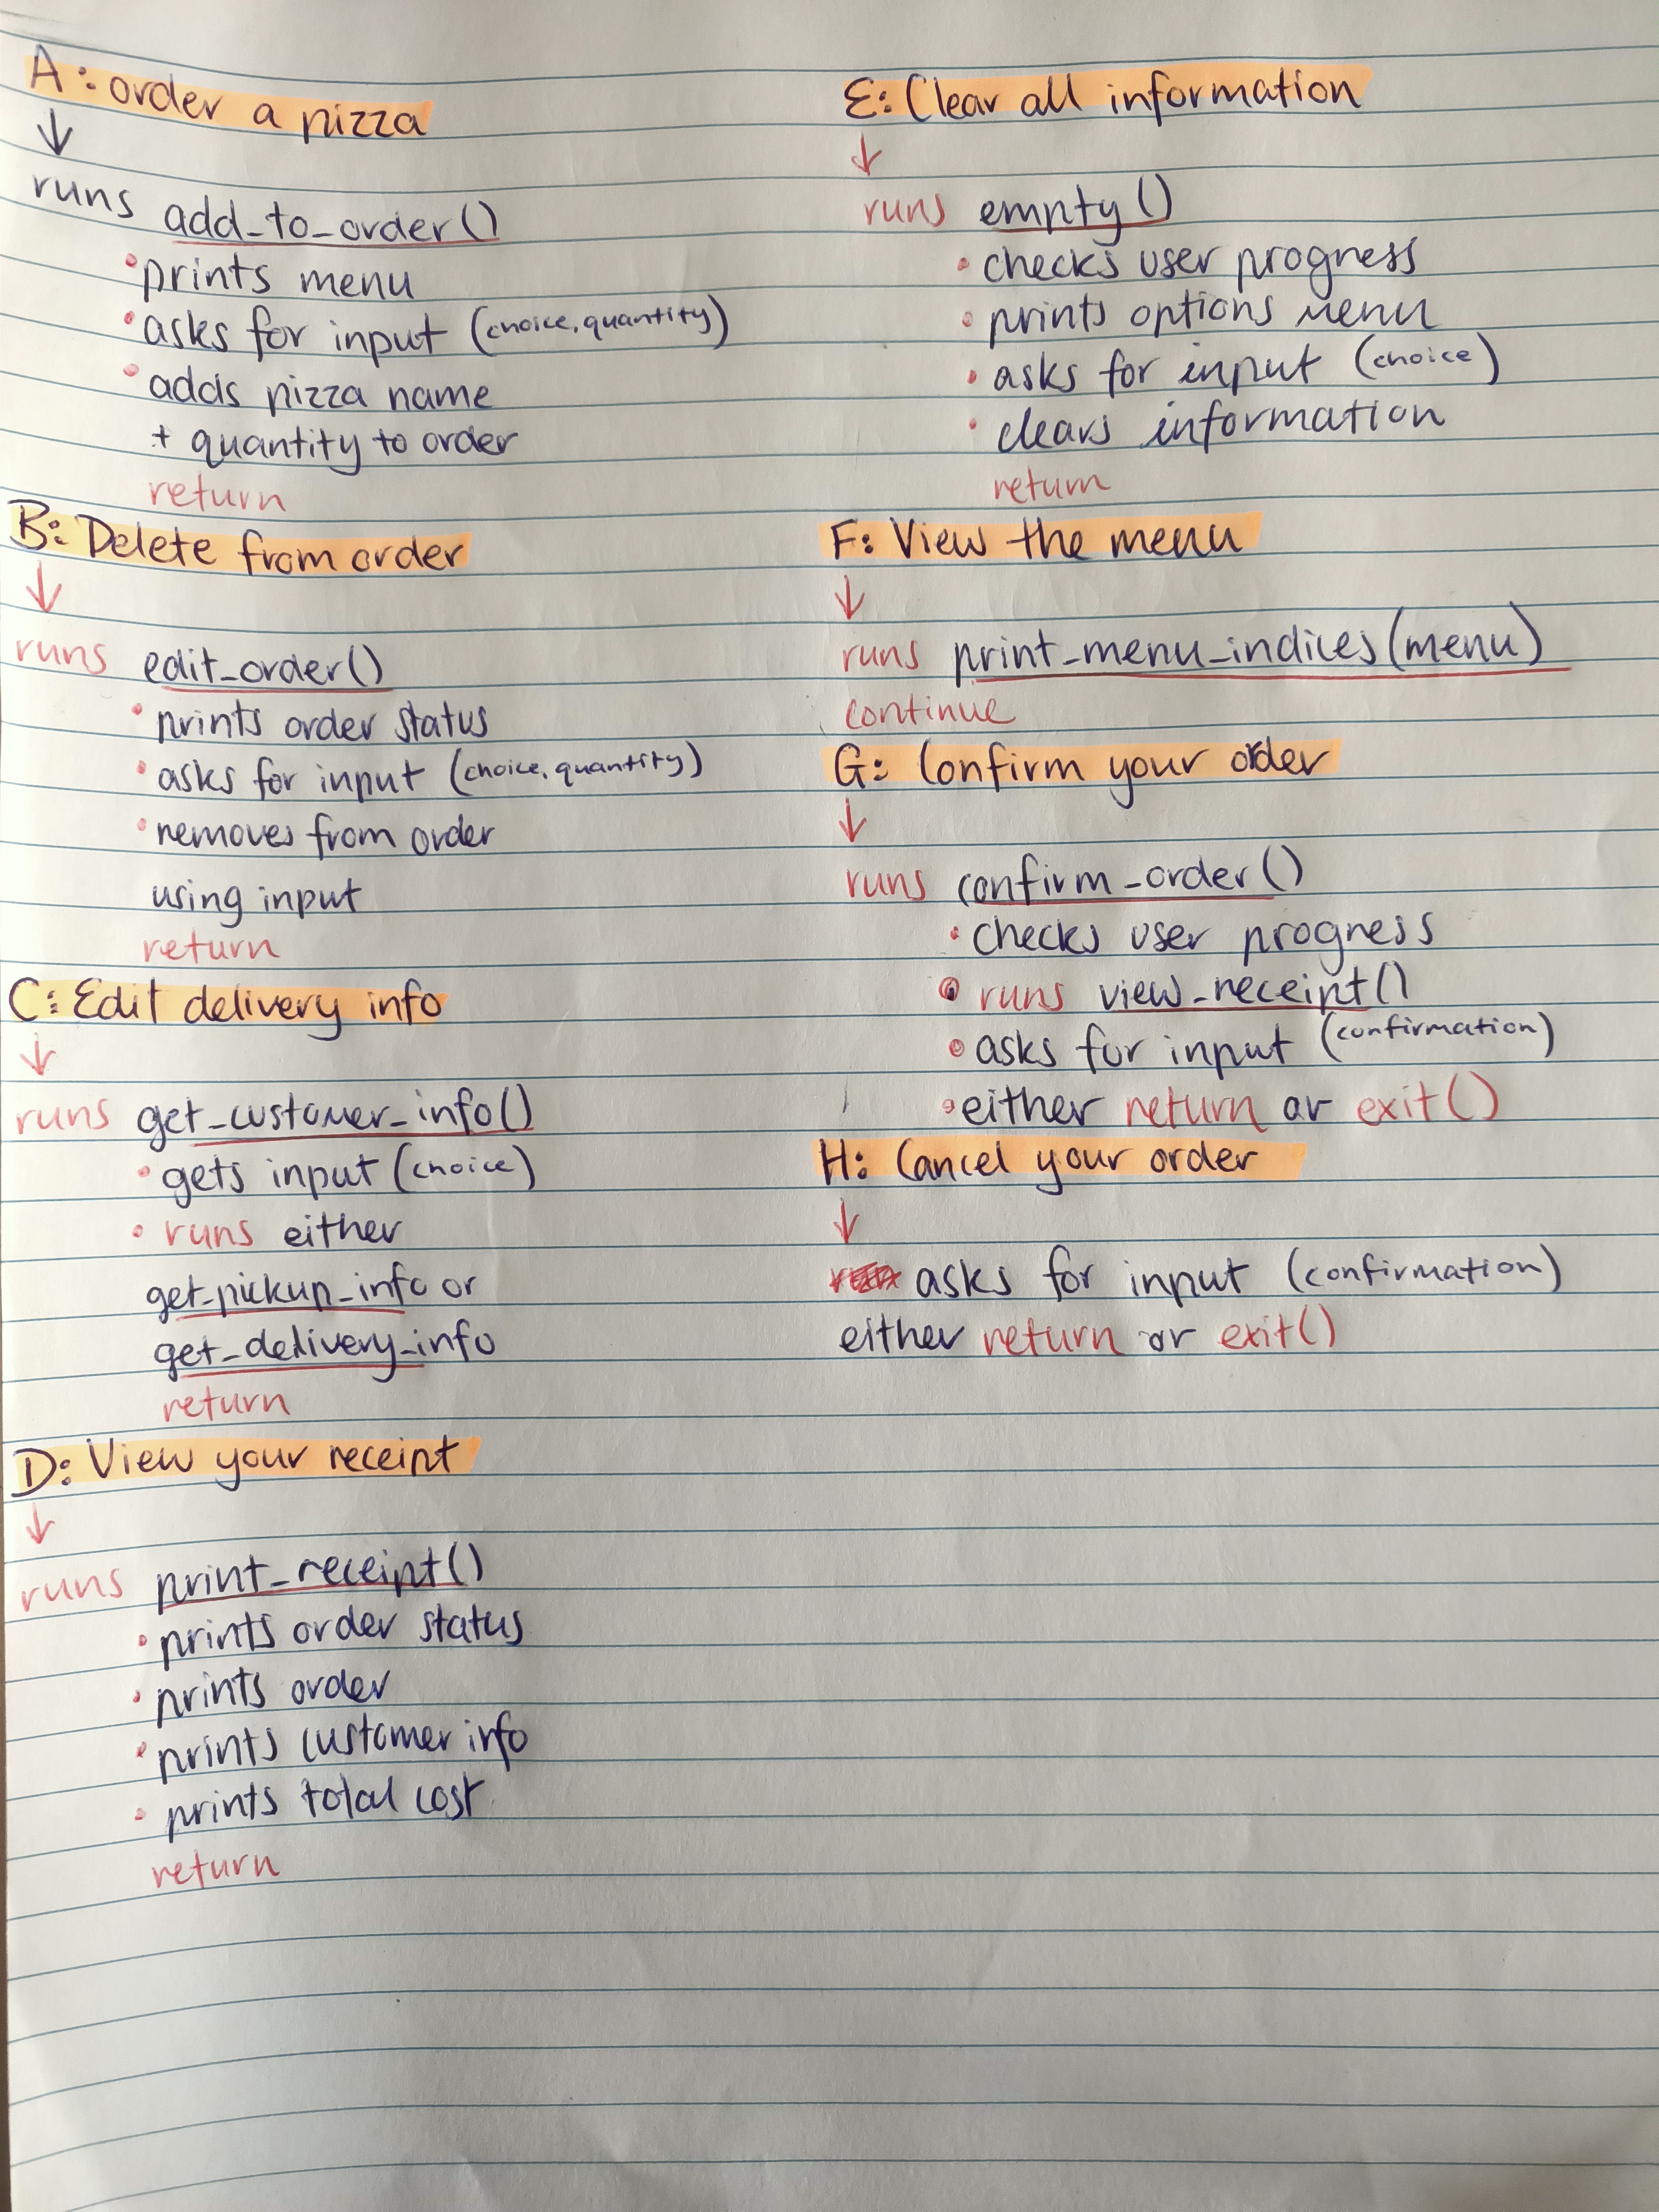 A: order a pizza
↓
runs add_to_order()
• prints menu
• asks for input (choice, quantity)
• adds pizza name
+ quantity to order
return
B: Delete from order
↓
runs edit_order()
• prints order status
• asks for input (choice, quantity)
• removes from order
using input
return
C: Edit delivery info
↓
runs get_customer_info()
• gets input (choice)
• runs either
get_pickup_info or
get_delivery_info
return
D: View your receipt
↓
runs print_receipt()
• prints order status
• prints order
• prints customer info
• prints total cost
return
E: Clear all information
↓
runs empty()
• checks user progress
• prints options menu
• asks for input (choice)
• clears information
return
F: View the menu
↓
runs print_menu_indices(menu)
continue
G: Confirm your order
↓
runs confirm_order()
• checks user progress
• runs view_receipt()
• asks for input (confirmation)
• either return or exit()
H: Cancel your order
↓
asks for input (confirmation)
either return or exit()